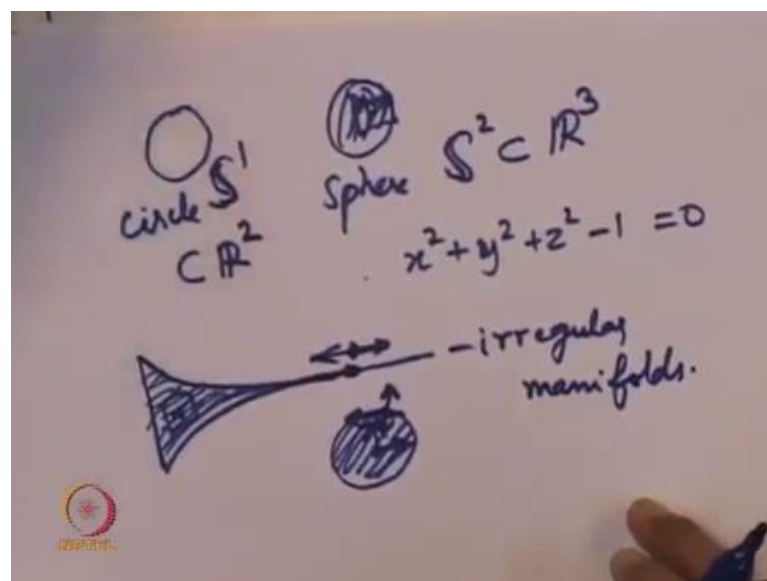 circle S¹
⊂ ℝ²
Sphere S² ⊂ ℝ³
x² + y² + z² - 1 = 0
- irregular
manifolds.
NPTEL